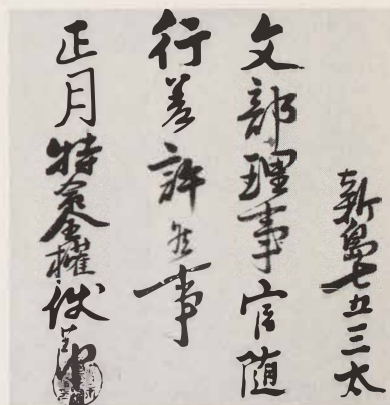 新島七五三太
文部理事官随
行差許候事
正月特命全權使